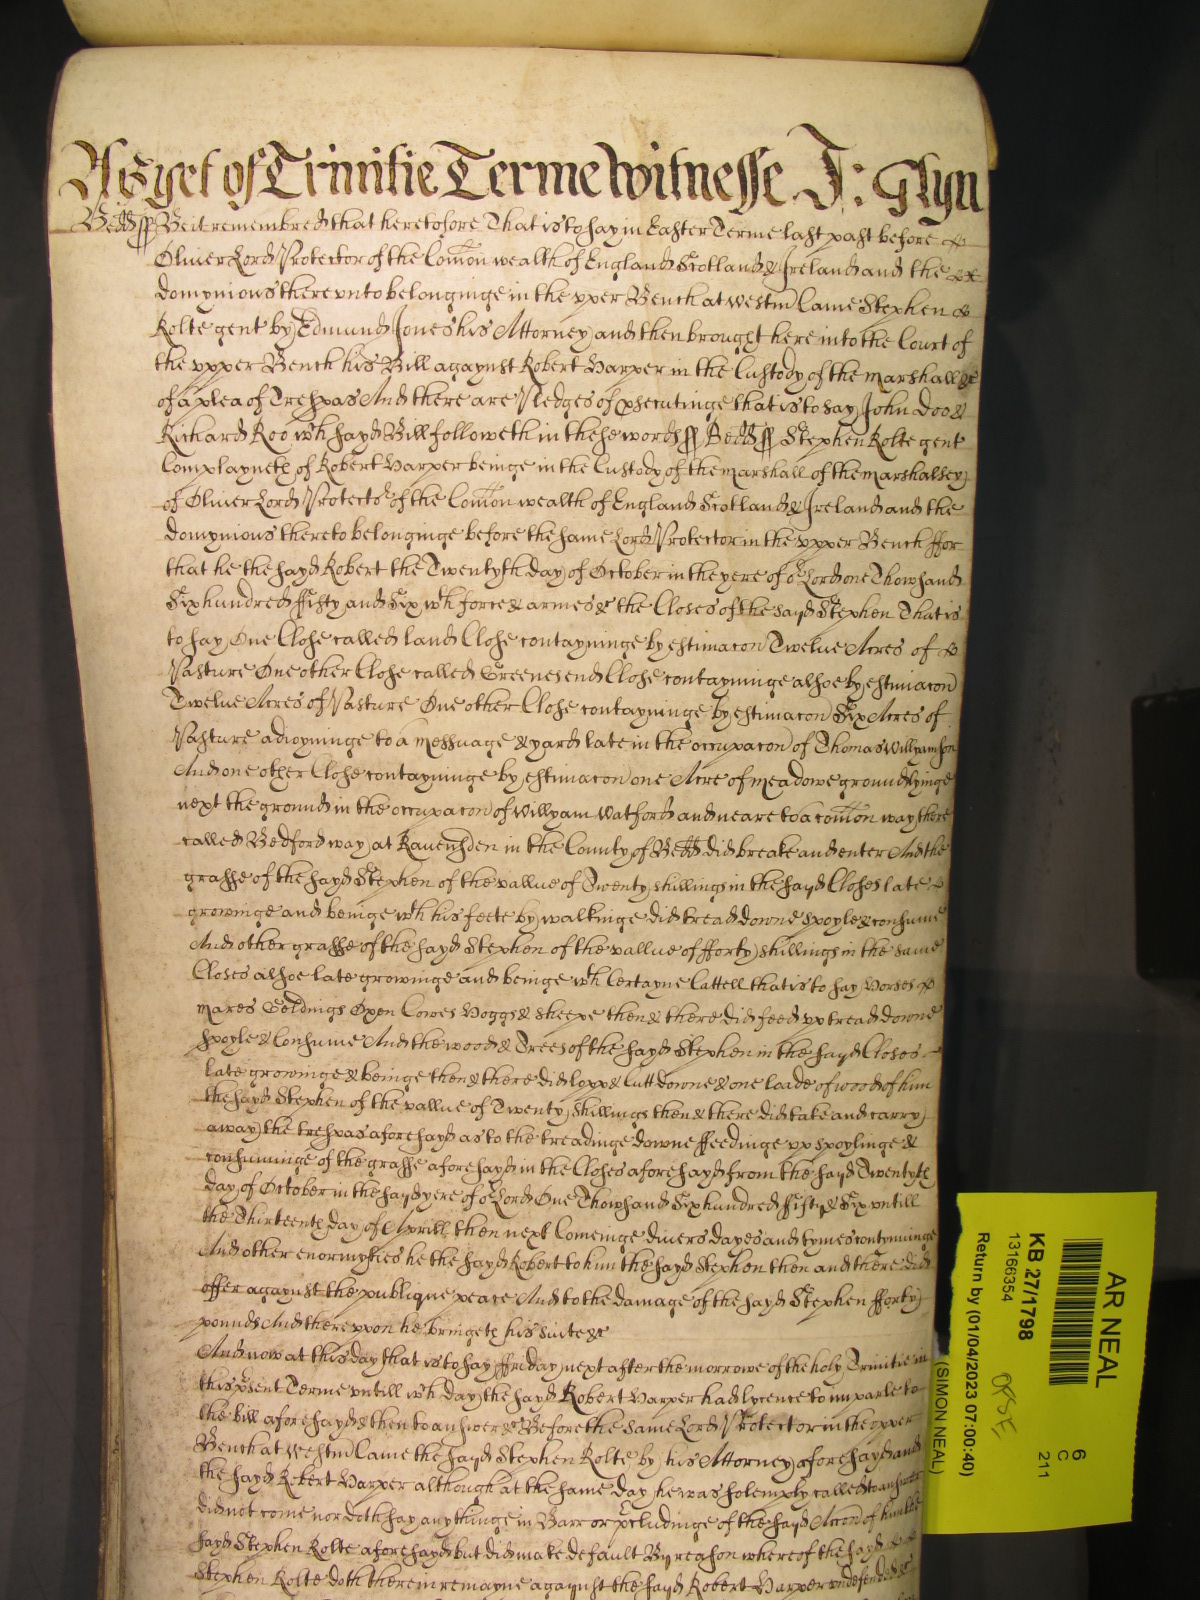 As yet of Trinitie Terme Witnesse J: Glyn
Bedd ss Be it remembred that heretofore That is to say in Easter Terme last past before
Oliver Lord Protector of the Comon wealth of England Scotland & Ireland and the
domynions thereunto belonginge in the upper Bench at Westm Came Stephen
Rolte gent by Edmund Jones his Attorney and then brought here into the Court of
the upper Bench his Bill agaynst Robert Harper in the Custody of the Marshall &c
of a plea of Trespas And there are Pledges of psecutinge that is to say John Doo &
Richard Roo wch sayd Bill followeth in these words ss Bedd ss Stephen Rolte gent
Complayneth of Robert Harper beinge in the Custody of the Marshall of the Marshalsey
of Oliver Lord Protector of the Comon wealth of England Scotland & Ireland and the
domynions thereto belonginge before the same Lord Protector in the upper Bench ffor
that he the sayd Robert the Twentyth day of October in the yere of or Lord one Thowsand
Six hundred ffifty and Six wth force & armes &c the Closes of the sayd Stephen That is
to say One Close called land Close contayninge by estimacon Twelve Acres of
Pasture One other Close called Greenesend Close contayninge alsoe by estimacon
Twelve Acres of Pasture One other Close contayninge by estimacon Six Acres of
Pasture adioyninge to a Messuage & yard late in the occupacon of Thomas Willyamson
And one other Close contayninge by estimacon one Acre of meadowe ground lyinge
next the ground in the occupacon of Willyam Watford and neare to a comon way there
called Bedford way at Ravensden in the County of Bedd did breake and enter And the
grasse of the sayd Stephen of the vallue of Twenty shillings in the sayd Closes late
growinge and beinge wth his feete by walkinge did tread downe spoyle & consume
And other grasse of the sayd Stephen of the vallue of fforty shillings in the same
Closes alsoe late growinge and beinge wth Certayne Cattell that is to say Horses
Mares Geldings Oxen Cowes Hoggs & sheepe then & there did feed up tread downe
spoyle & Consume And the wood & Trees of the sayd Stephen in the sayd Closes
late growinge & beinge then & there did lopp & Cutt downe & one loade of wood of him
the sayd Stephen of the vallue of Twenty shillings then & there did take and carry
away the trespas aforesayd as to the treadinge downe ffeedinge up spoylinge &
consuminge of the grasse aforesayd in the Closes aforesayd from the sayd Twentyth
day of October in the sayd yere of or Lord One Thowsand Six hundred ffifty & Six untill
the Thirteenth day of Aprill then next Comeinge divers dayes and tymes contynuinge
And other enormyties he the sayd Robert to him the sayd Stephen then and there did
offer agaynst the publique peace And to the damage of the sayd Stephen fforty
pounds And thereupon he bringeth his suite &c
And now at this day that is to say ffriday next after the morrowe of the holy Trinitie in
this psent Terme untill wch day the sayd Robert Harper had lycence to imparle to
the bill aforesayd & then to answer &c Before the same Lord Protector in the upper
Bench at Westm Came the sayd Stephen Rolte by his Attorney aforesayd and
the sayd Robert Harper although at the same day he was solemply called to answer
did not come nor doth say any thinge in Barr or pcludinge of the sayd Accon of him the
sayd Stephen Rolte aforesayd but did make default By reason whereof the sayd
Stephen Rolte doth therein remayne agaynst the sayd Robert Harper undefended &c
AR NEAL
KB 27/1798
13166354
Return by (01/04/2023 07:00:40)
(SIMON NEAL)
6
C
211